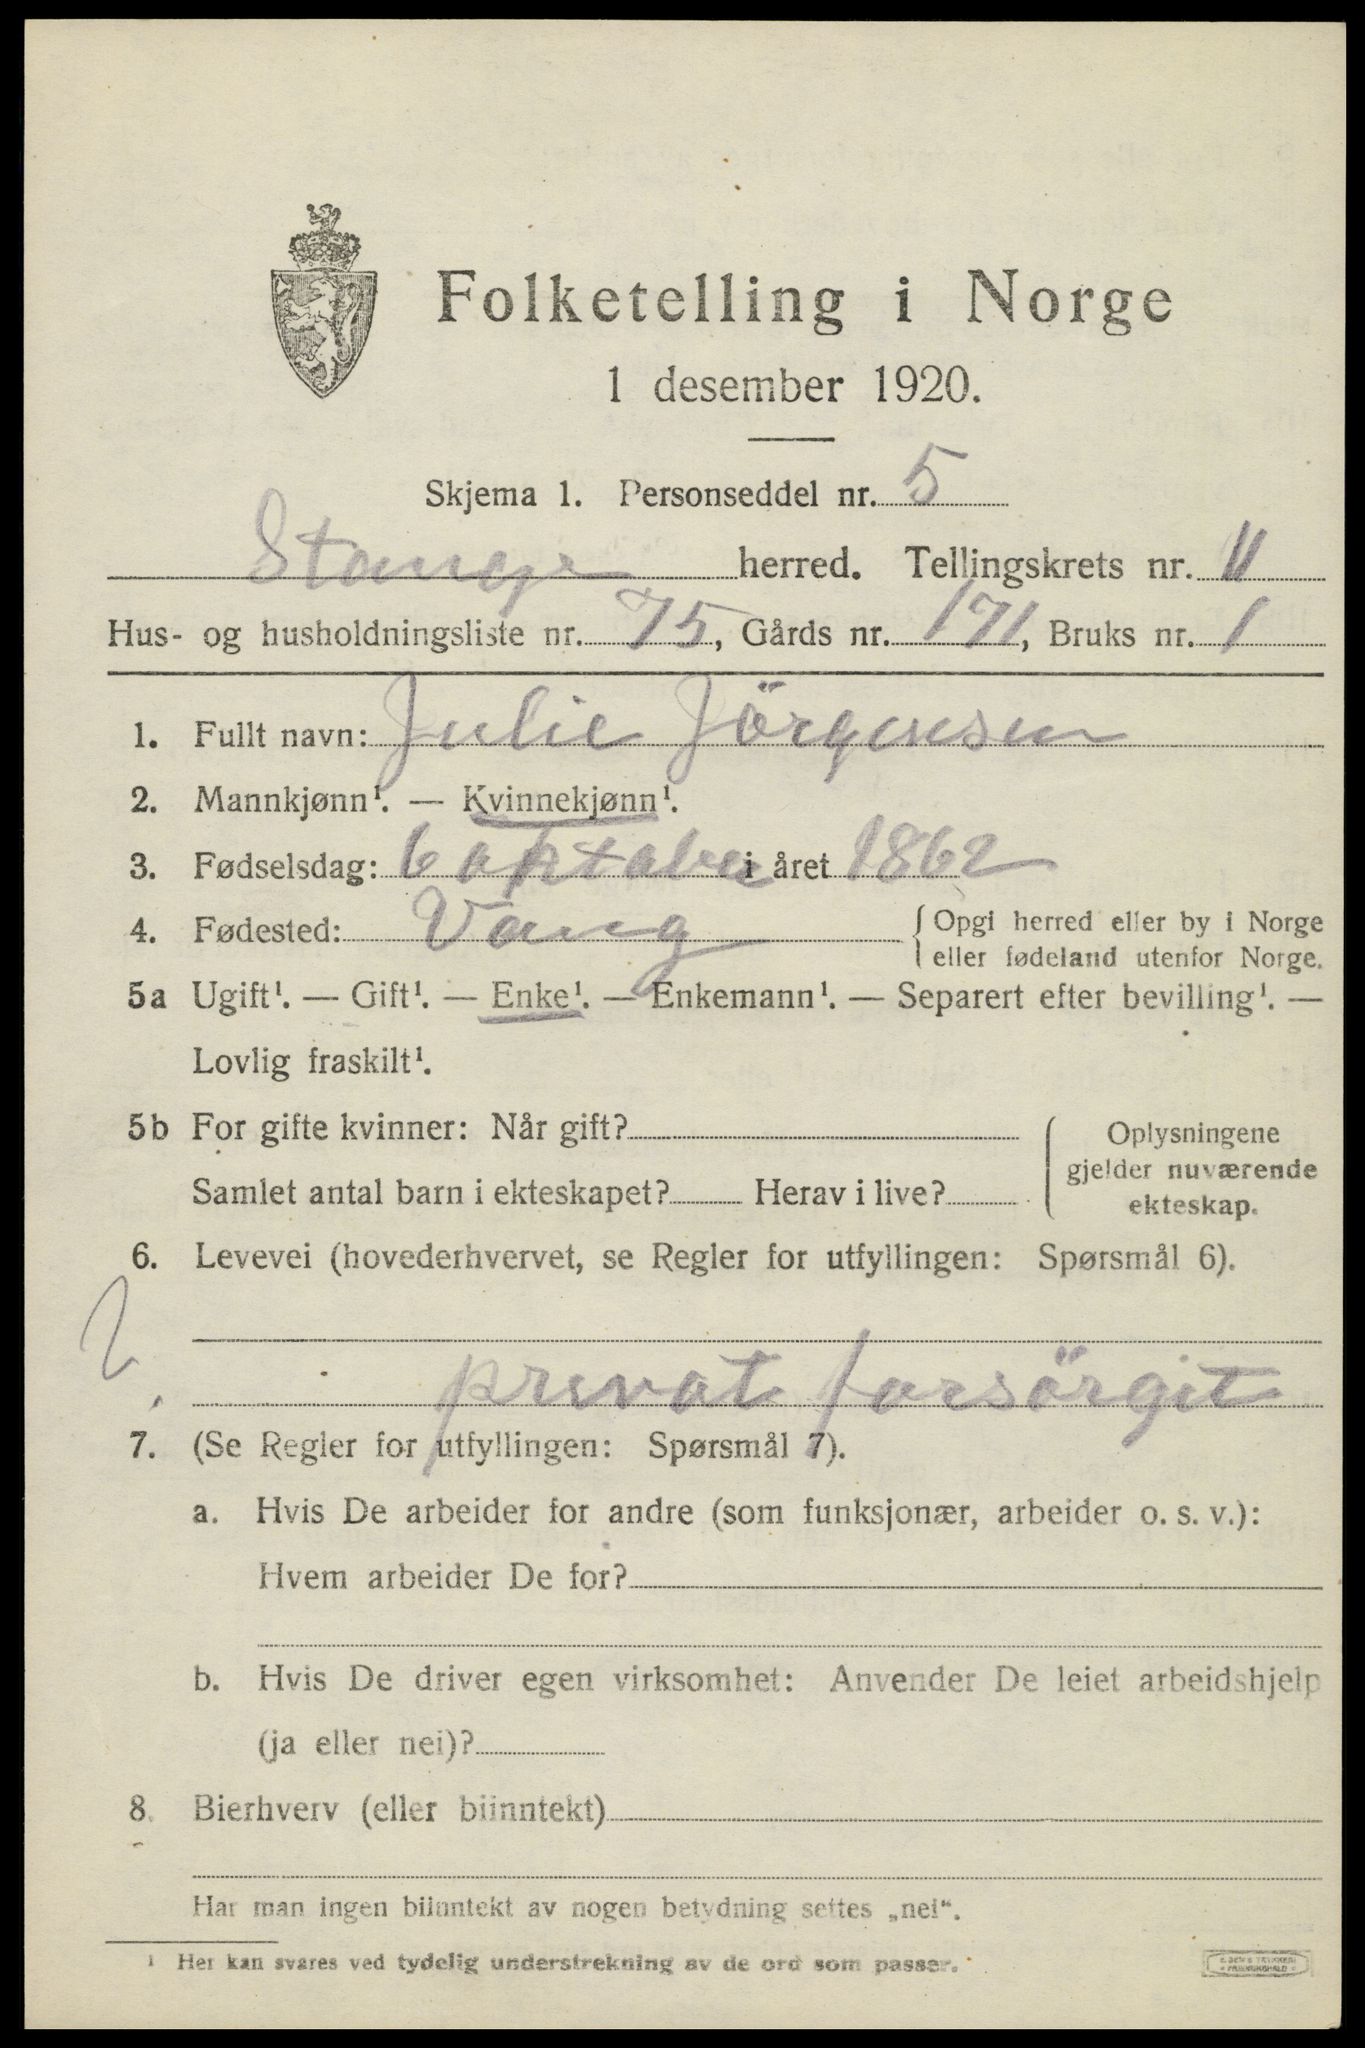 Folketelling i Norge
1 desember 1920.
Skjema 1. Personseddel nr. 5
Stange herred. Tellingskrets nr. 11
Hus- og husholdningsliste nr. 75, Gårds nr. 171, Bruks nr. 1
1. Fullt navn: Julie Jörgensen
2. Mannkjønn¹. — Kvinnekjønn¹.
3. Fødselsdag: 6 oktober i året 1862
4. Fødested: Vang { Opgi herred eller by i Norge
eller fødeland utenfor Norge.
5a Ugift¹. — Gift¹. — Enke¹. — Enkemann¹. — Separert efter bevilling¹. —
Lovlig fraskilt¹.
5b For gifte kvinner: Når gift? { Oplysningene
gjelder nuværende
Samlet antal barn i ekteskapet? Herav i live? ekteskap.
6. Levevei (hovederhvervet, se Regler for utfyllingen: Spørsmål 6).
privat forsörget
7. (Se Regler for utfyllingen: Spørsmål 7).
a. Hvis De arbeider for andre (som funksjonær, arbeider o. s. v.):
Hvem arbeider De for?
b. Hvis De driver egen virksomhet: Anvender De leiet arbeidshjelp
(ja eller nei)?
8. Bierhverv (eller biinntekt)
Har man ingen biinntekt av nogen betydning settes „nei“.
¹ Her kan svares ved tydelig understrekning av de ord som passer.